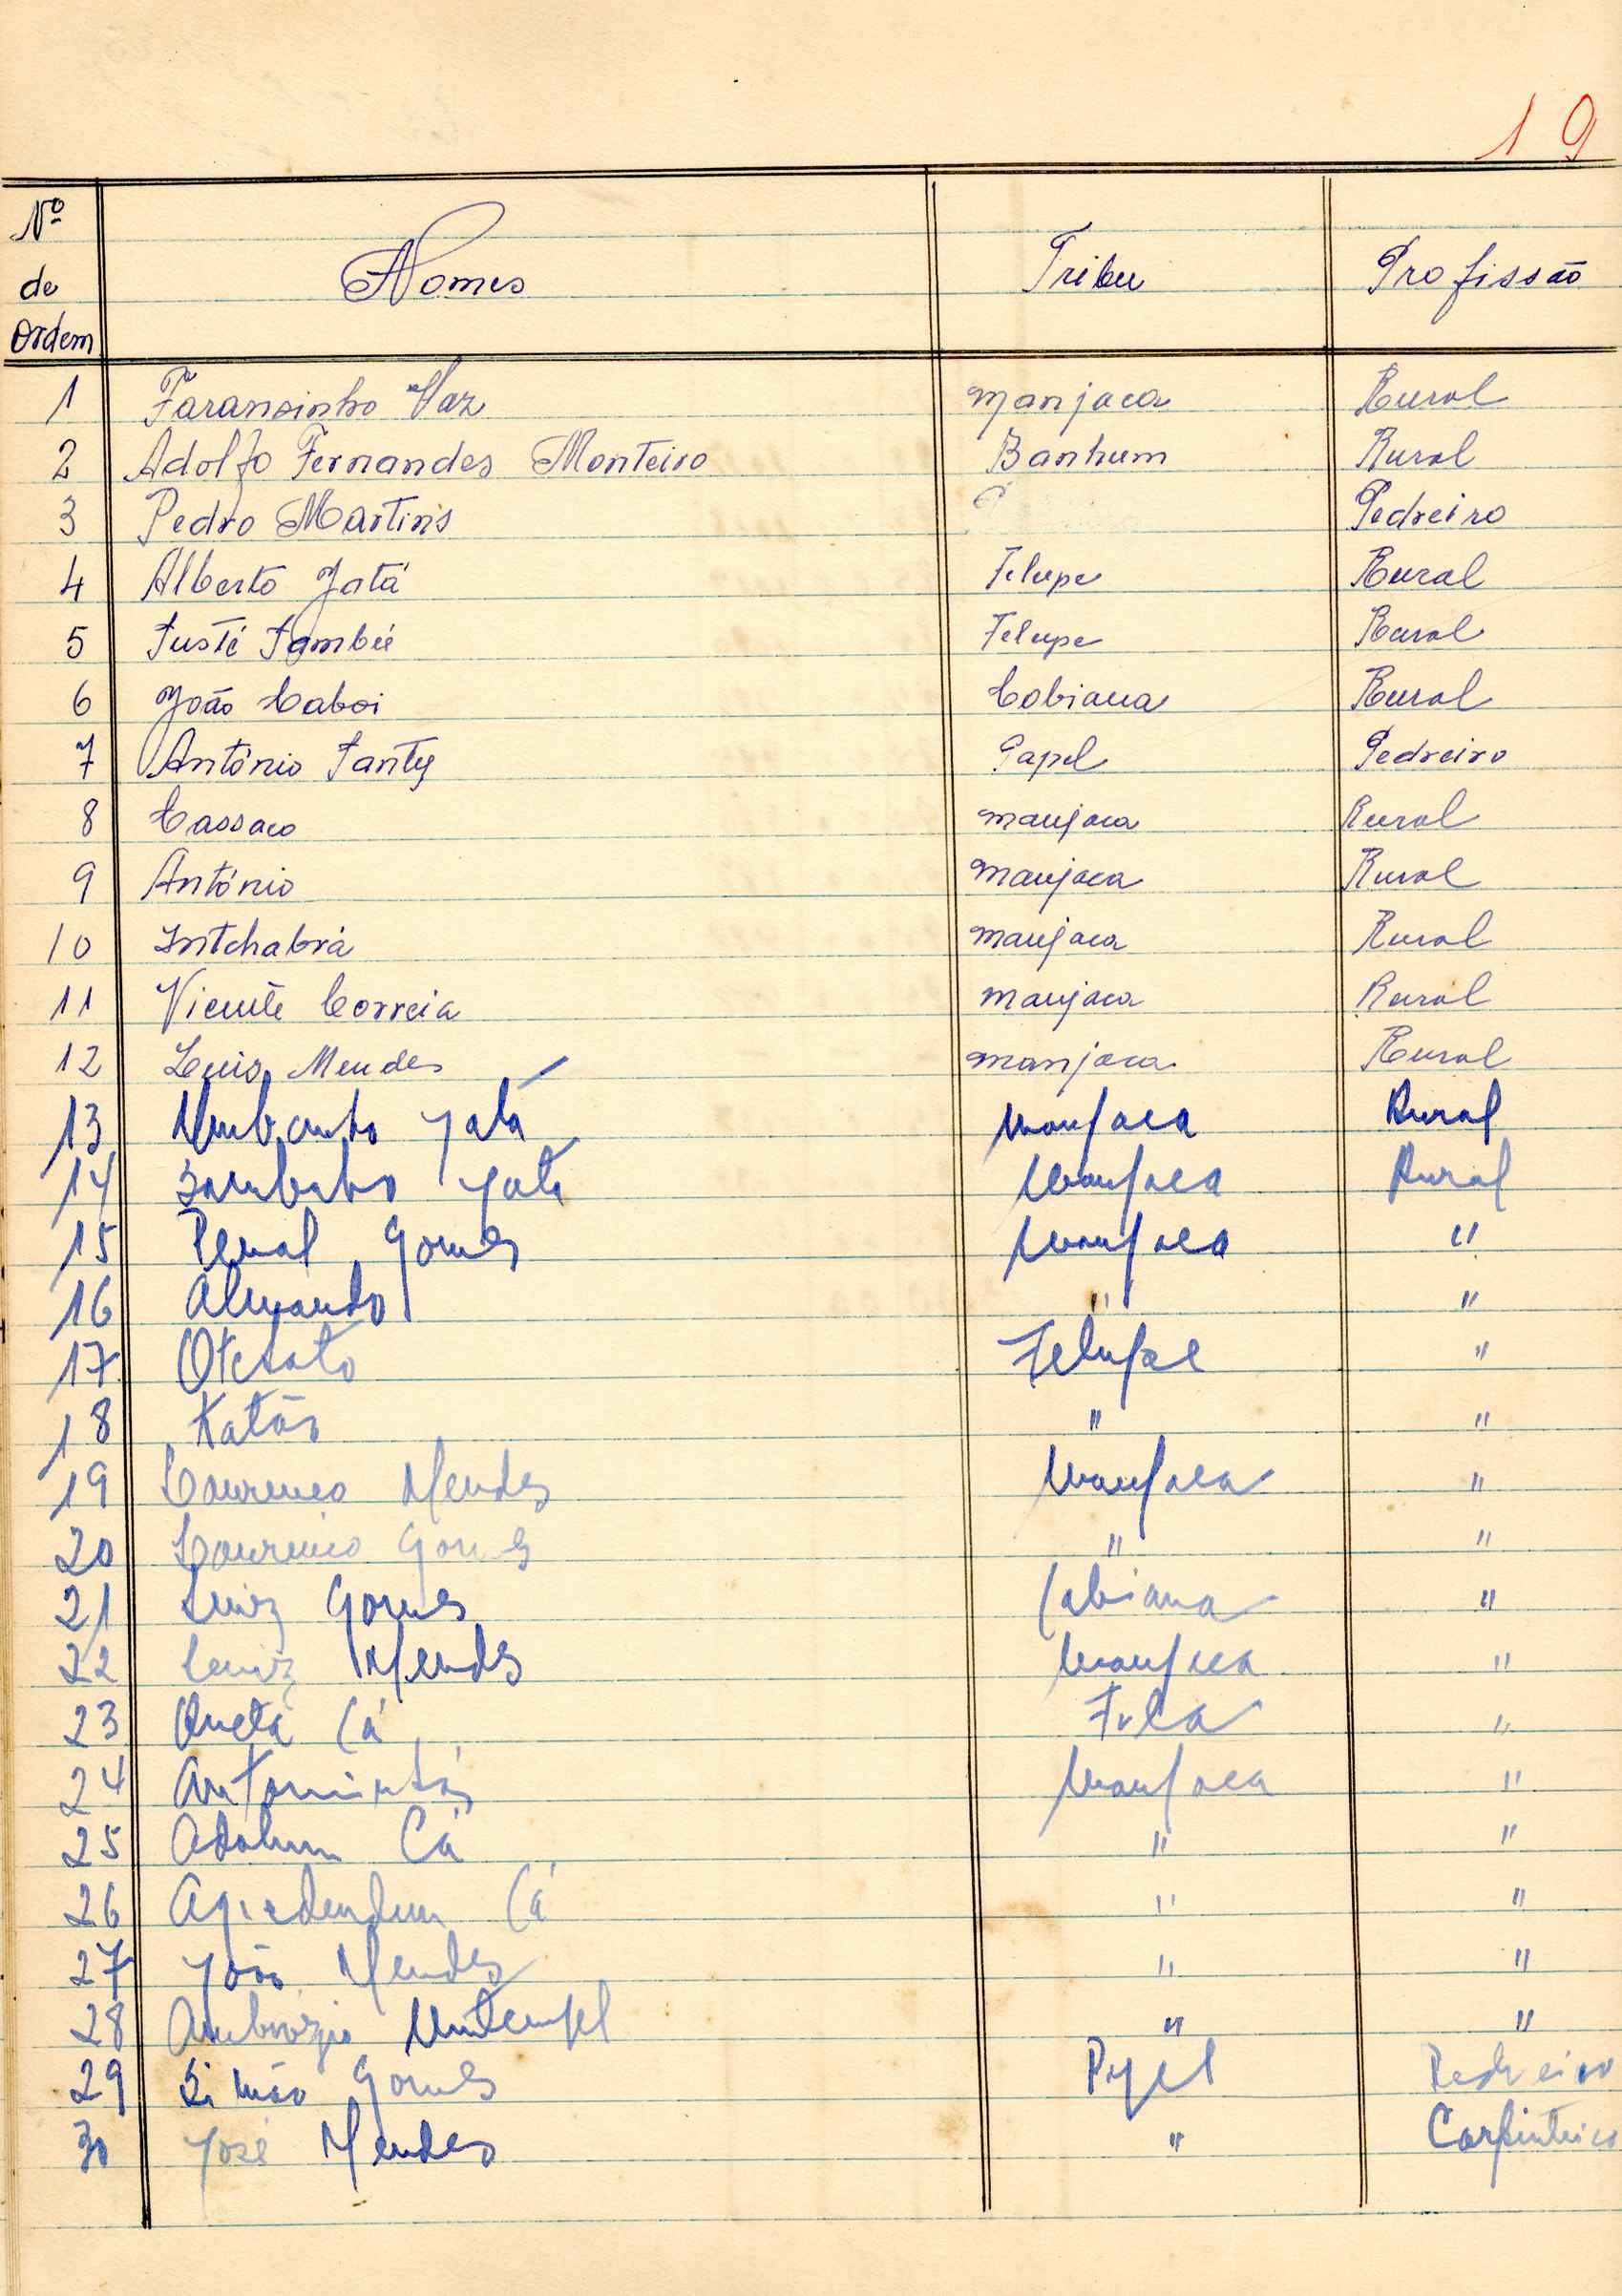 19
Nº de Ordem Nomes Tribu Profissão
1 Faransinho Vaz manjaca Rural
2 Adolfo Fernandes Monteiro Banhum Rural
3 Pedro Martins P Pedreiro
4 Alberto Jatá Felupe Rural
5 Felupe Rural
6 João Caboi Cobiana Rural
7 António Papel Pedreiro
8 Cassaco manjaca Rural
9 António manjaca Rural
10 Intchabrá manjaca Rural
11 Vicente Correia manjaca Rural
12 Luis Mendes manjaca Rural
13 Jatá manjaca Rural
14 Jatá manjaca Rural
15 Gomes manjaca "
16 Armando " "
17 Felupe "
18 " "
19 Lourenco Mendes manjaca "
20 Lourenco Gomes " "
21 Luiz Gomes Cobiana "
22 Luiz Mendes manjaca "
23 Cá Fula "
24 manjaca "
25 Cá " "
26 Cá " "
27 João Mendes " "
28 Ambrózio " "
29 Simão Gomes Pedreiro
30 José Mendes " Carpinteiro